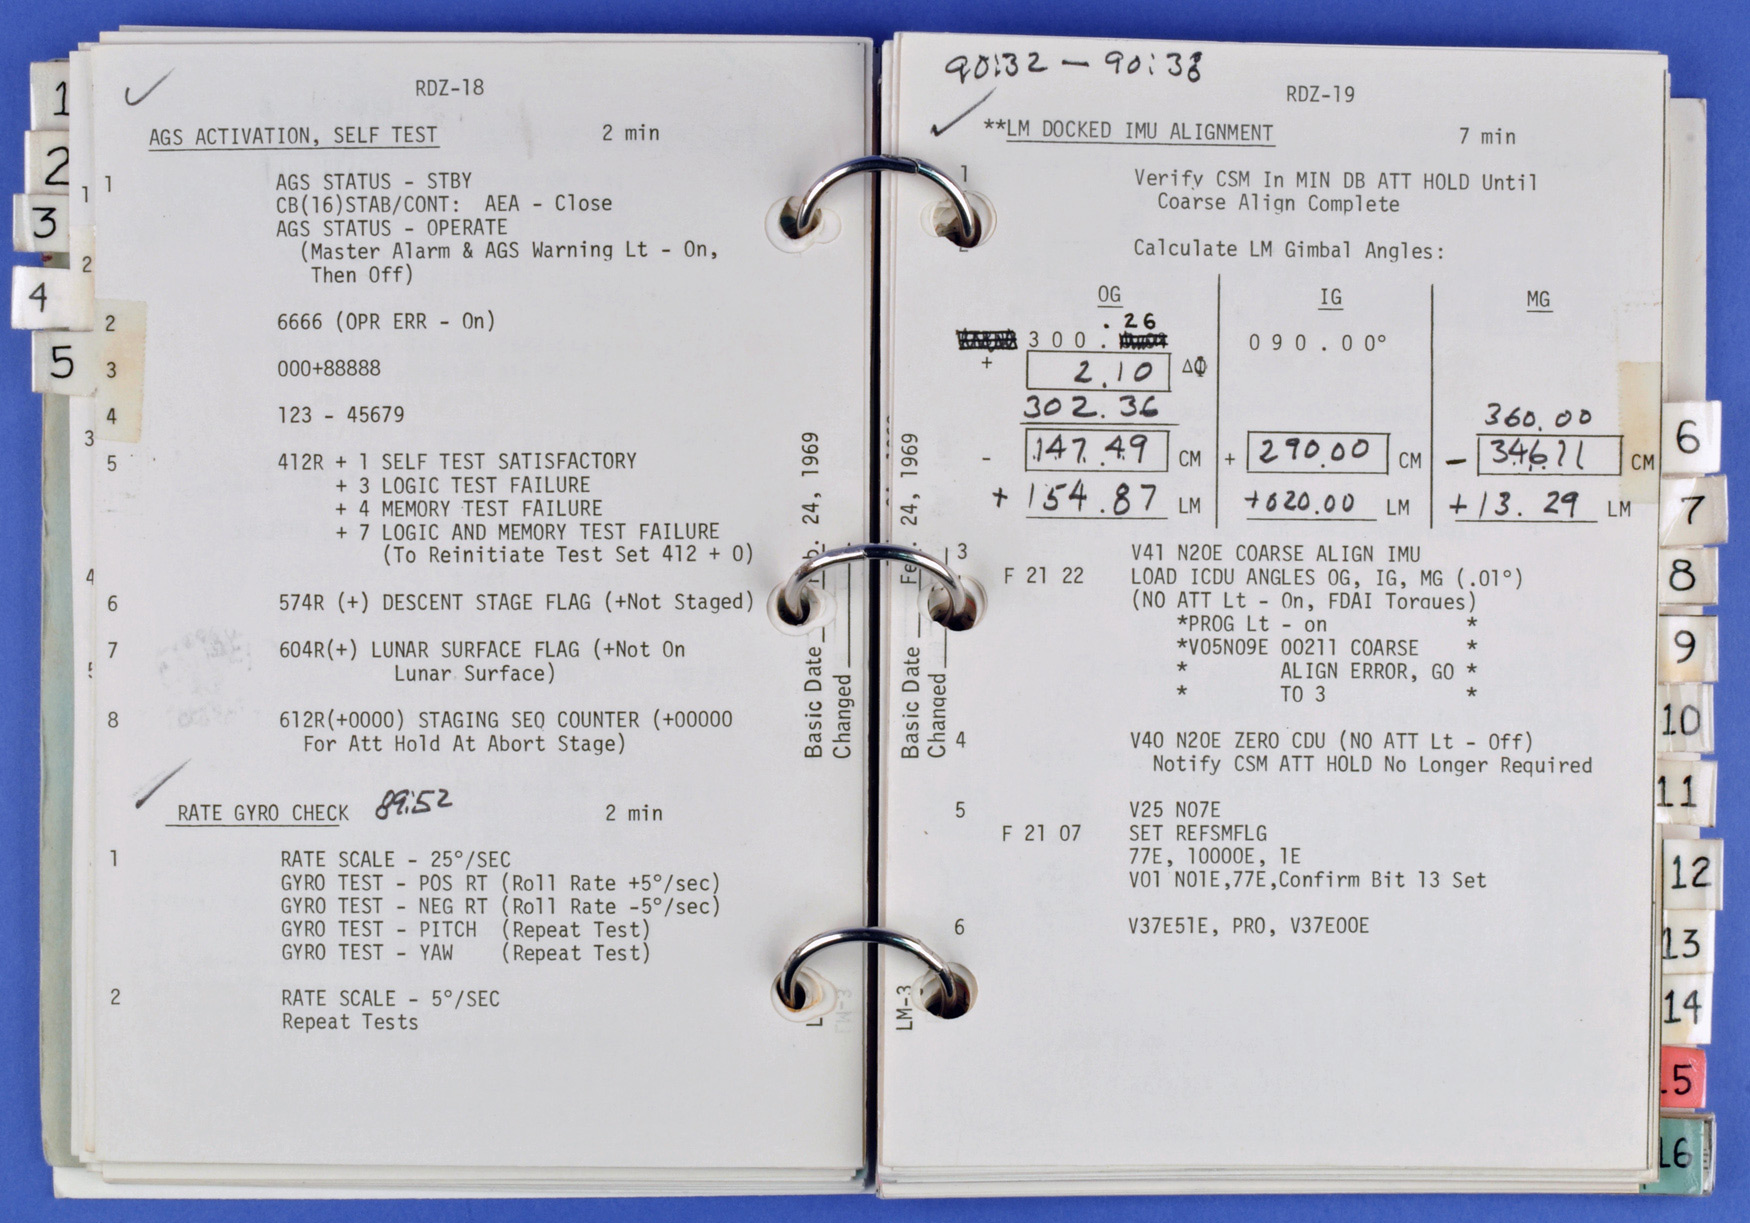 RDZ-18
AGS ACTIVATION, SELF TEST 2 min
1 AGS STATUS - STBY
CB(16)STAB/CONT: AEA - Close
AGS STATUS - OPERATE
(Master Alarm & AGS Warning Lt - On,
Then Off)
2 6666 (OPR ERR - On)
3 000+88888
4 123 - 45679
5 412R + 1 SELF TEST SATISFACTORY
+ 3 LOGIC TEST FAILURE
+ 4 MEMORY TEST FAILURE
+ 7 LOGIC AND MEMORY TEST FAILURE
(To Reinitiate Test Set 412 + 0)
6 574R (+) DESCENT STAGE FLAG (+Not Staged)
7 604R(+) LUNAR SURFACE FLAG (+Not On
Lunar Surface)
8 612R(+0000) STAGING SEQ COUNTER (+00000
For Att Hold At Abort Stage)
RATE GYRO CHECK 89:52 2 min
1 RATE SCALE - 25°/SEC
GYRO TEST - POS RT (Roll Rate +5°/sec)
GYRO TEST - NEG RT (Roll Rate -5°/sec)
GYRO TEST - PITCH (Repeat Test)
GYRO TEST - YAW (Repeat Test)
2 RATE SCALE - 5°/SEC
Repeat Tests
Basic Date 24, 1969
Changed
1
2
3
4
5
1
2
3
4
90:32 - 90:38
RDZ-19
**LM DOCKED IMU ALIGNMENT 7 min
1 Verify CSM In MIN DB ATT HOLD Until
Coarse Align Complete
Calculate LM Gimbal Angles:
OG IG MG
.26
300. 090.00°
+ 2.10 ΔΦ
302.36 360.00
- 147.49 CM + 290.00 CM - 346.71 CM
+ 154.87 LM +020.00 LM +13.29 LM
3 V41 N20E COARSE ALIGN IMU
F 21 22 LOAD ICDU ANGLES OG, IG, MG (.01°)
(NO ATT Lt - On, FDAI Torques)
*PROG Lt - on *
*V05N09E 00211 COARSE *
* ALIGN ERROR, GO *
* TO 3 *
4 V40 N20E ZERO CDU (NO ATT Lt - Off)
Notify CSM ATT HOLD No Longer Required
5 V25 N07E
F 21 07 SET REFSMFLG
77E, 10000E, 1E
V01 N01E,77E,Confirm Bit 13 Set
6 V37E51E, PRO, V37E00E
Basic Date 24, 1969
Changed
LM-3
6
7
8
9
10
11
12
13
14
15
16